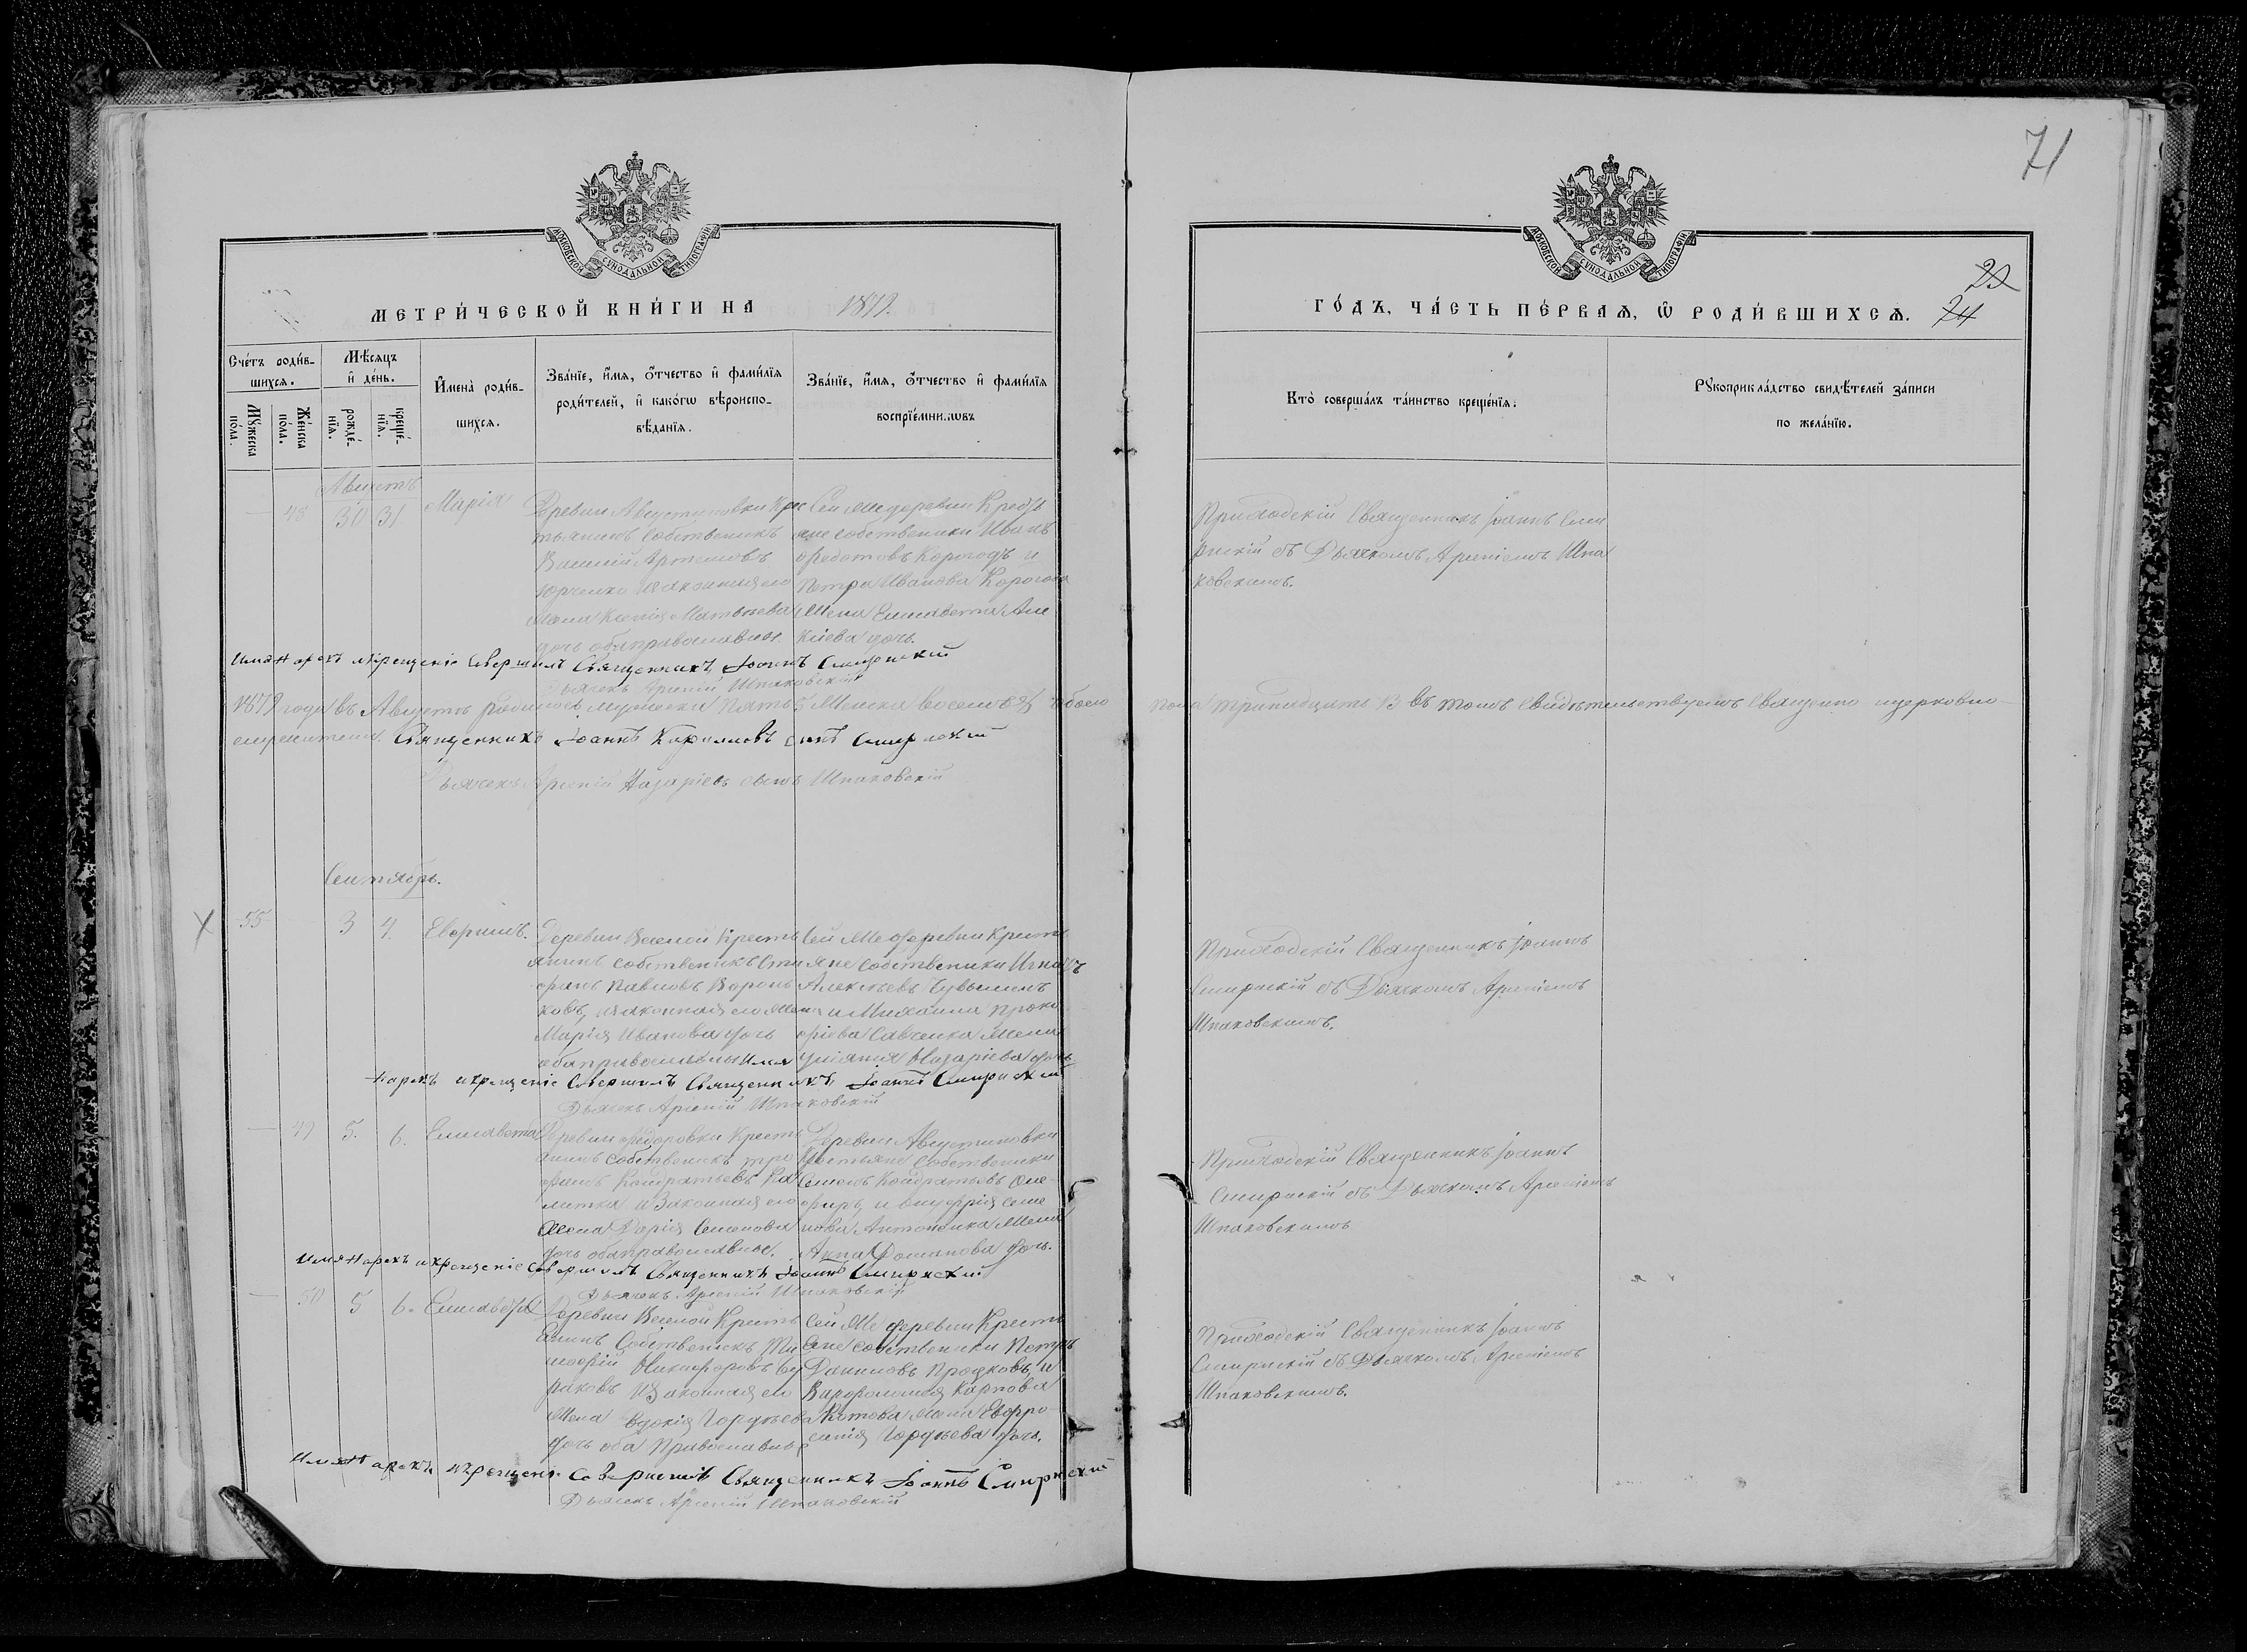 71
МОСКОВСКОЙ СѴНОДАЛЬНОЙ ТИПОГРАФІИ
МОСКОВСКОЙ СѴНОДАЛЬНОЙ ТИПОГРАФІИ
22
МЕТРИ́ЧЕСКОЙ КНИ́ГИ НА 1879.
ГО́ДЪ, ЧА́СТЬ ПЕ́РВАѦ, Ѡ҆ РОДИ́ВШИХСѦ. 24
Сче́тъ роди́в-
шихся.
Мѣ́сяцъ
и҆ де́нь.
И҆мена̀ роди́в-
шихся.
Зва́нїе, и҆́мя, ѻ҆́тчество и҆ фами́лїя
роди́телей, и҆ како́гѡ вѣроиспо-
вѣ́данїя.
Зва́нїе, и҆́мя, ѻ҆́тчество и҆ фами́лїя
воспрїе́мниковъ
Кто̀ соверша́лъ та́инство креще́нїя.
Рꙋкоприкла́дство свидѣ́телей за́писи
по жела́нїю.
Мꙋ́жеска
по́ла.
Же́нска
по́ла.
рожде́-
нїя.
креще́-
нїя.
Августъ
48 30 31 Марія
Деревни Августиновки Крес
тьянинъ собственикъ
Василій Артемовъ
Юрченко и законная его
жена Ксенія Матвѣева
дочь оба православные
Сей же деревни Кресть
яне собственики Иванъ
Федотовъ Корогодъ и
Петра Иванова Корогода
жена Елисавета Але
ксѣева дочь.
Приходскій Священникъ Іоаннъ Сми
рнскій съ Дьячкомъ Арсеніемъ Шпа
ковскимъ.
Имя нарекъ и крещеніе совершилъ Священникъ Іоаннъ Смирнскій
Дьячекъ Арсеній Шпаковскій
1879 года въ Августѣ родилось мужеска пять 5 женска восемь 8 обоего пола тринадцать 13 въ томъ свидѣтельствуемъ Священно церковно-
служители. Священникъ Іоаннъ Кириловъ сынъ Смирнскій
Дьячекъ Арсеній Назаріевъ сынъ Шпаковскій
Сентябрь.
55 3 4
Деревни Веселой Кресть
янинъ собственикъ Сти
фанъ Павловъ Воронь
ковъ, и законная его жена
Марія Иванова дочь
оба православны Имя
Сей же деревни Кресть
яне собственики Игнатъ
Алексѣевъ
и Михаила Проко
фіева Савченка жена
Уліянія Назаріева дочь
Приходскій Священникъ Іоаннъ
Смирнскій съ Дьячкомъ Арсеніемъ
Шпаковскимъ.
нарекъ и крещеніе совершилъ Священникъ Іоаннъ Смирнскій
Дьячекъ Арсеній Шпаковскій
49 5. 6. Елисавета
Деревни Федоровки Кресть
янинъ собственикъ Тро
фимъ Кондратьевъ Ка
литка и законная его
жена Дарія Семенова
дочь оба православные.
Деревни Августиновки
Крестьяне собственики
Семенъ Кондратьевъ
и Онуфрія Семе
нова Антоненка жена
Анна Романова дочь.
Приходскій Священникъ Іоаннъ
Смирнскій съ Дьячкомъ Арсеніемъ
Шпаковскимъ
Имя нарекъ и крещеніе совершилъ Священникъ Іоаннъ Смирнскій
Дьячекъ Арсеній Шпаковскій
50 5 6. Елисавета
Деревни Веселой Кресть
янинъ Собственикъ Ти
мофій Никифоровъ Бу
раковъ и законная его
жена Евдокія Гордѣева
дочь оба Православные
Сей же деревни Кресть
яне собственики Петръ
Даниловъ Продковъ, и
Варфоломея Карпова
Котова жена Евфро-
синія Гордѣева дочь.
Приходскій Священникъ Іоаннъ
Смирнскій съ Дьячкомъ Арсеніемъ
Шпаковскимъ.
Имя нарекъ и крещеніе совершилъ Священникъ Іоаннъ Смирнскій
Дьячекъ Арсеній Шпаковскій